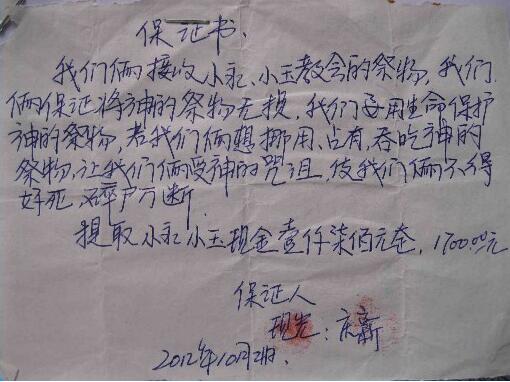 保证书、
我们俩接收小永、小玉教会的祭物，我们
俩保证将神的祭物无损，我们要用生命保护
神的祭物，若我们俩想挪用、占有、吞吃神的
祭物，让我们俩受神的咒诅，使我们俩不得
好死，碎尸万断
提取小永小玉现金壹仟柒佰元仝，1700.00元
保证人
：庆新
2012年10月2日